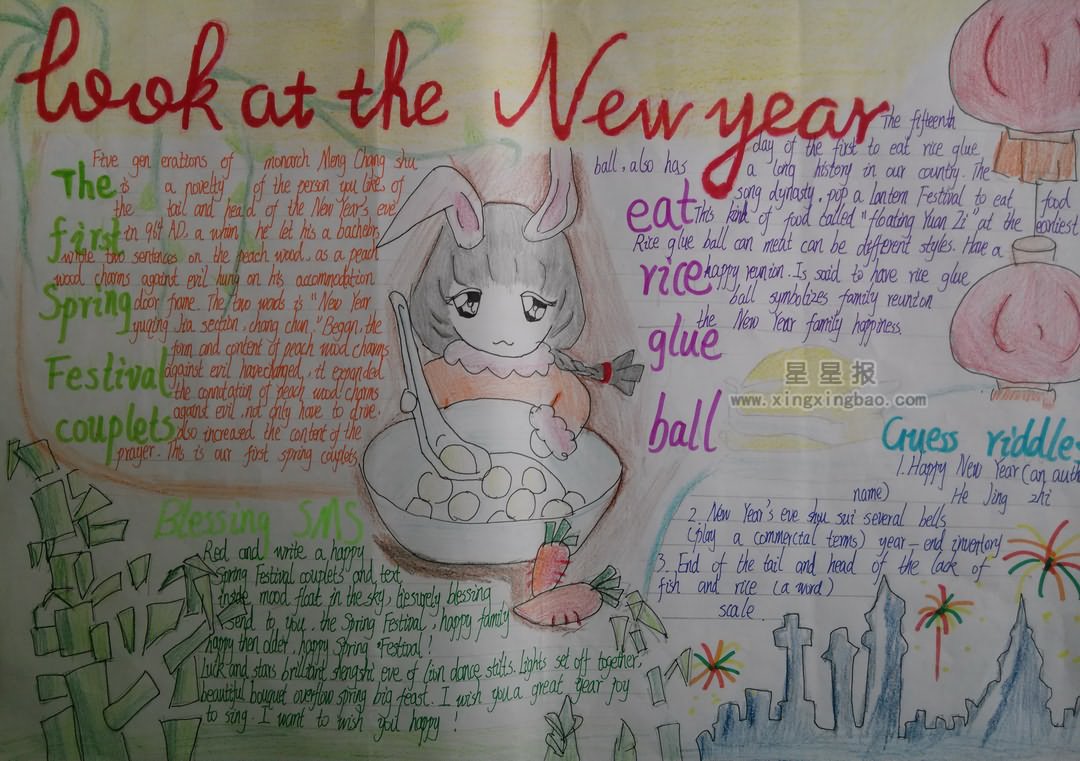 Look at the New year
The
first
Spring
Festival
couplets
Five gen erations of monarch Meng Chang shu
is a novelty of the person you like, of
the tail and head of the New Year's eve
in 964 AD, a whim he let his a bachelor
write two sentences on the peach wood. as a peach
wood charms against evil hung on his accommodation
door frame. The two words is "New Year
yuqing Jia section, chang chun." Began, the
form and content of peach wood charms
against evil have changed, it expanded
the connotation of peach wood charms
against evil, not only have to drive.
also increased the content of the
prayer. This is our first spring couplets
eat
rice
glue
ball
The fifteenth
day of the first to eat rice glue
ball, also has a long history in our country. The
song dynasty, pop a lantern Festival to eat food
This kind of food called "floating Yuan Zi" at the earliest
Rice glue ball can meat can be different styles. Have a
happy reunion. Is said to have rice glue
ball symbolizes family reunion
the New Year family happiness.
星星报
www.xingxingbao.com
Guess riddles
1. Happy New Year (an auth
name) He Jing zhi
2. New Year's eve shu sui several bells
(play a commercial terms) year-end inventory
3. End of the tail and head of the lack of
fish and rice (a word)
scale
Blessing SMS
Red and write a happy
Spring Festival couplets and text,
inside mood float in the sky, leisurely blessing
send to you. the Spring Festival, happy family
happy then older, happy Spring Festival!
Luck and stars brilliant shengshi eve of Lion dance stilts. Lights set off together,
beautiful bouquet overflow spring big feast. I wish you a great year joy
to sing. I want to wish you happy!